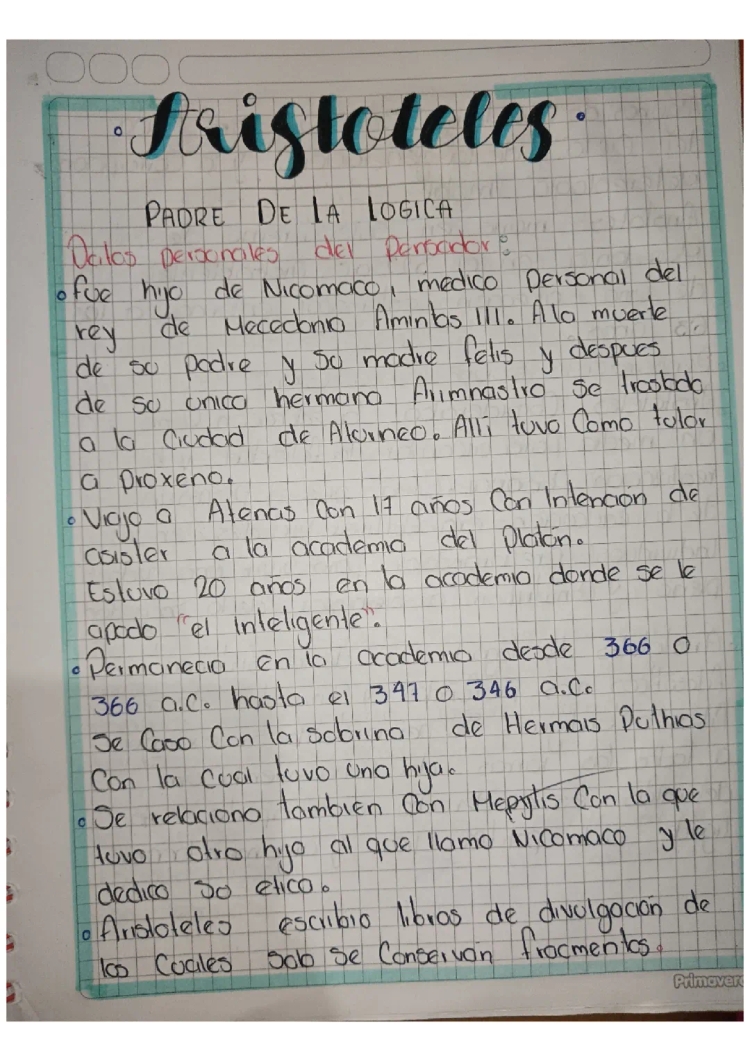 Aristoteles
PADRE DE LA LOGICA
Datos personales del Pensador:
fue hijo de Nicomaco, medico personal del
rey de Mecedonio Amintas III. A la muerte
de su padre y su madre felis y despues
de su unico hermano Arimnastro se trasbdo
a la Ciudad de Atarneo. Alli tuvo Como tutor
a proxeno.
Viajo a Atenas Con 17 años Con Intención de
asister a la academia del Platón.
Estuvo 20 años en la academia donde se le
apodo "el inteligente".
Permanecio en la academia desde 366 o
366 a.C. hasta el 347 o 346 a.C.
Se Caso Con la sobrina de Hermais Puthias
Con la Cual tuvo una hija.
Se relaciono tambien Con Hepytis Con la que
tuvo otro hijo al que llamo Nicomaco y le
dedico su etica.
Aristoteles escribio libros de divulgación de
los Cuales solo se Conservan fracmentos.
Primavera